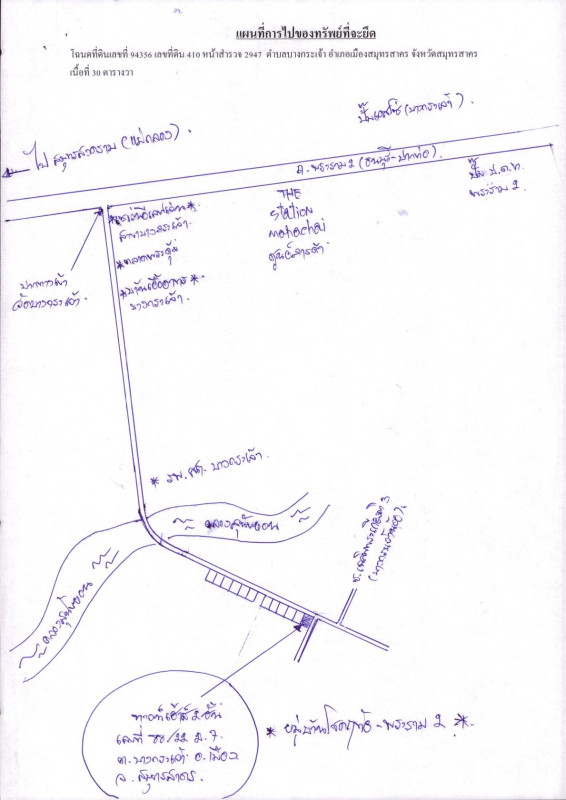 แผนที่การไปของทรัพย์ที่จะยึด
โฉนดที่ดินเลขที่ 94356 เลขที่ดิน 410 หน้าสำรวจ 2947 ตำบลบางกระเจ้า อำเภอเมืองสมุทรสาคร จังหวัดสมุทรสาคร
เนื้อที่ 30 ตารางวา
ปั๊มเอสโซ่ (บางกระเจ้า).
ไป สมุทรสงคราม (แม่กลอง).
ถ. พระราม 2 (ธนบุรี-ปากท่อ).
ปั๊ม ป.ต.ท.
พระราม 2.
THE
Station
Mahachai
สาขาบางกระเจ้า.
*บ้านเอื้ออาทร*
บางกระเจ้า.
ปากทางเข้า
วัดบางกระเจ้า.
* รพ.สต. บางกระเจ้า.
ทาวน์เฮ้าส์ 2 ชั้น
เลขที่ 88/22 ม.7
ต.บางกระเจ้า อ.เมือง
จ.สมุทรสาคร.
* หมู่บ้าน - พระราม 2 *.